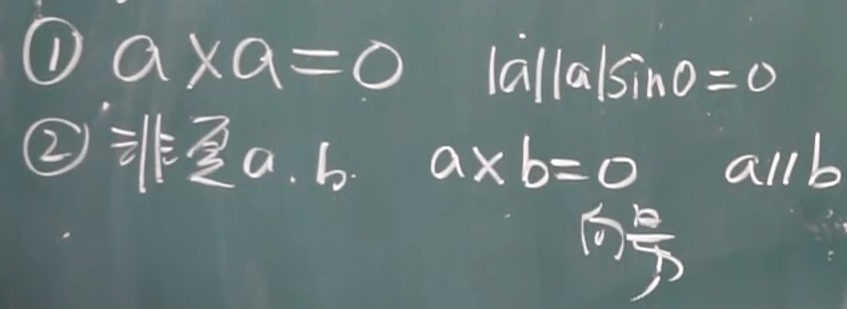 ① a×a=0 |a||a|sin0=0
② 非零a.b. a×b=0 a//b
向量